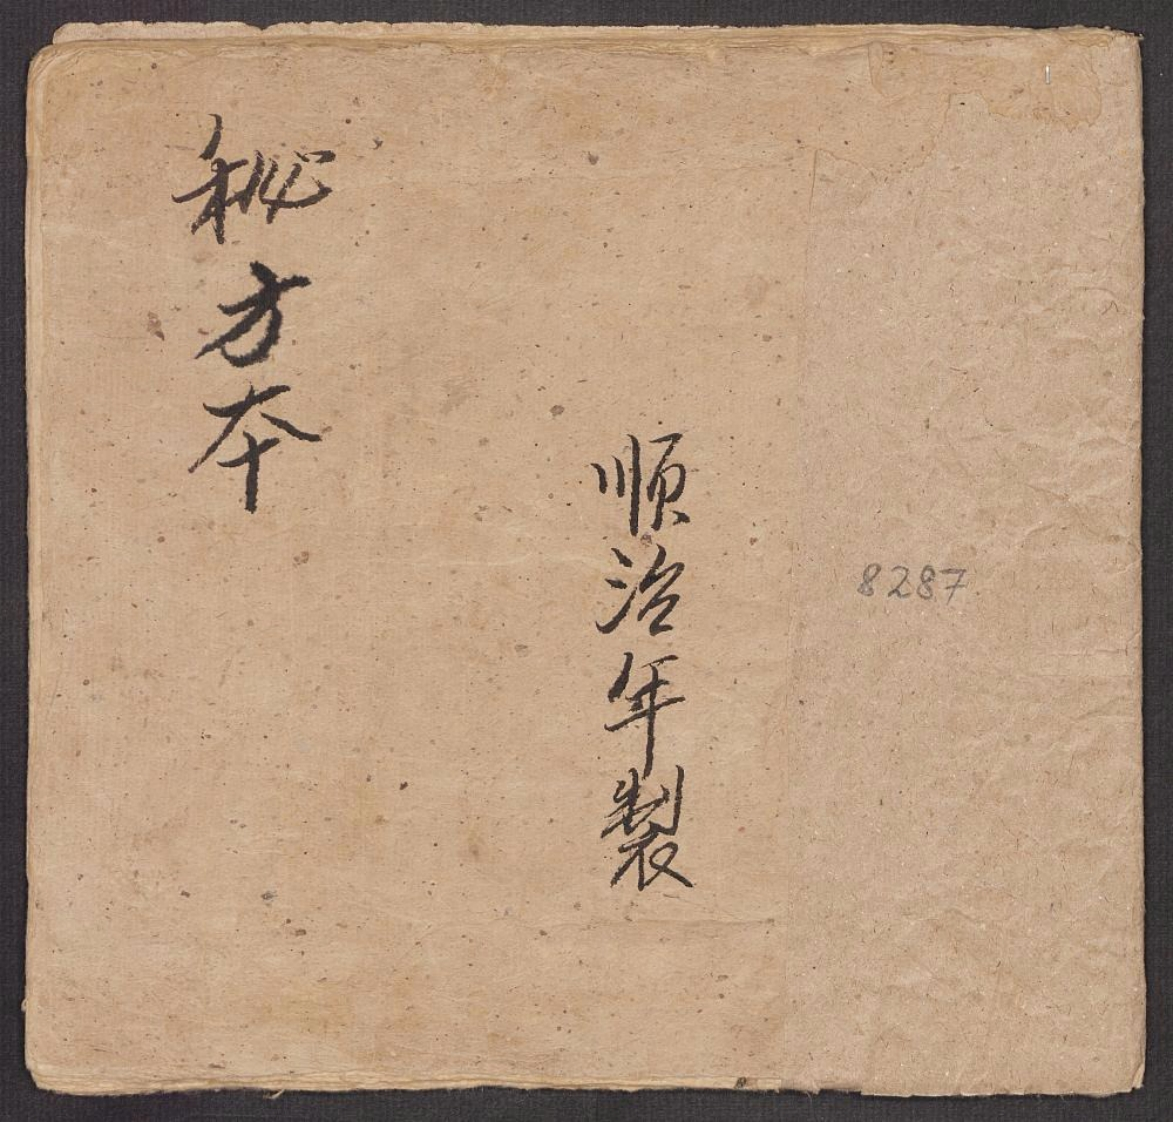 秘方本
順治年製
8287